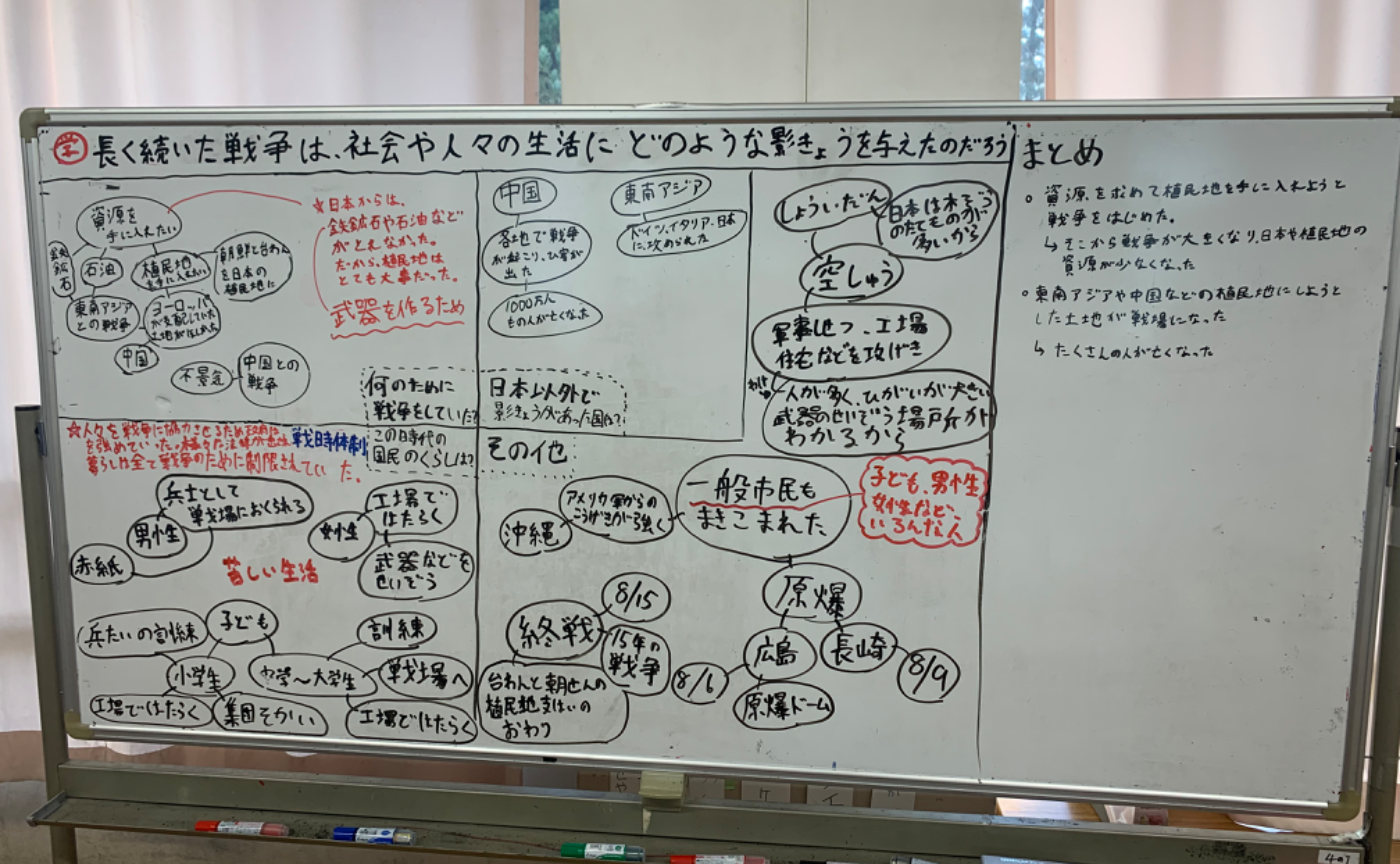 学 長く続いた戦争は、社会や人々の生活に どのような影きょうを与えたのだろう
資源を
手に入れたい
鉄鉱石
石油
植民地
を手に入れたい
朝鮮と台わん
を日本の
植民地に
東南アジア
との戦争
ヨーロッパ
が支配していた
土地がほしかった
中国
不景気
中国との
戦争
☆日本からは、
鉄鉱石や石油など
がとれなかった。
だから、植民地は
とても大事だった。
武器を作るため
何のために
戦争をしていた?
中国
各地で戦争
が起こり、ひ害が
出た
1000万人
もの人が亡くなった
東南アジア
ドイツ、イタリア、日本
に、攻められた
日本以外で
影きょうがあった国は?
しょういだん
日本は木ぞう
のたてものが
多いから
空しゅう
軍事しせつ、工場
住宅などを攻げき
わけは
人が多く、ひがいが大きい
武器のせいぞう場所が
わかるから
☆人々を戦争に協力させるため政府は
を強めていった。様々な法律が
戦時体制
暮らしは全て戦争のために制限されていった。
この時代の
国民のくらしは?
兵士として
戦場におくられる
男性
赤紙
女性
工場で
はたらく
武器などを
せいぞう
苦しい生活
子ども
兵たいの訓練
小学生
工場ではたらく
集団そかい
中学〜大学生
訓練
戦場へ
工場ではたらく
その他
一般市民も
まきこまれた
子ども、男性
女性など、
いろんな人
アメリカ軍からの
こうげきが強く
沖縄
原爆
広島
長崎
8/6
8/9
原爆ドーム
終戦
8/15
15年の
戦争
台わんと朝せんの
植民地支はいの
おわり
まとめ
○ 資源を求めて植民地を手に入れようと
戦争をはじめた。
↳ そこから戦争が大きくなり、日本や植民地の
資源が少なくなった
○ 東南アジアや中国などの植民地にしようと
した土地が戦場になった
↳ たくさんの人が亡くなった